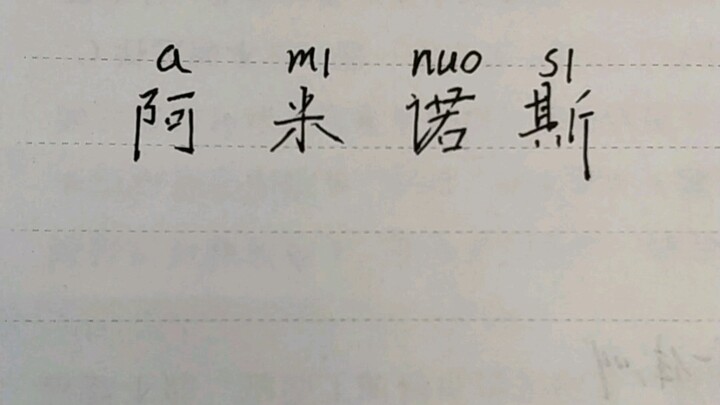 a mi nuo si
阿 米 诺 斯